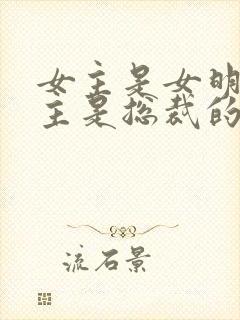 女主是女明
主是总裁的
流石景